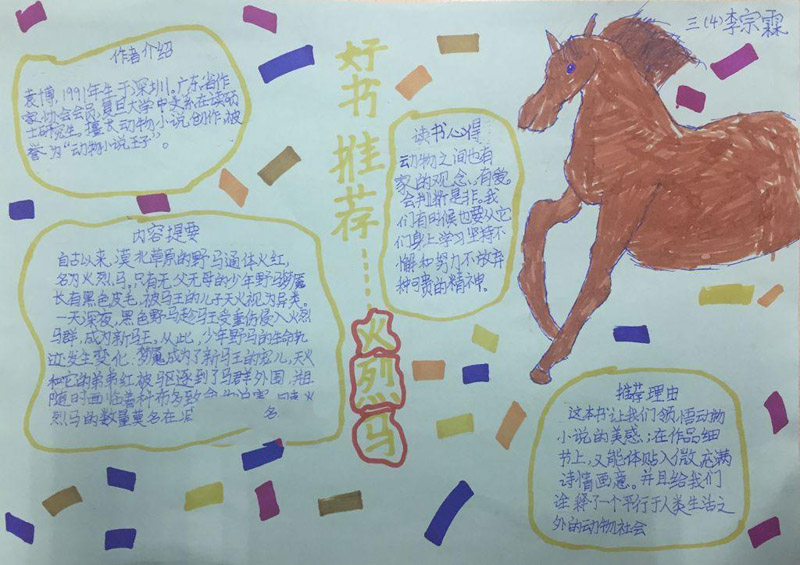 三(4)李宗霖
好书推荐……火烈马
作者介绍
袁博，1991年生于深圳。广东省作
家协会会员，复旦大学中文系在读硕
士研究生。擅长动物小说创作，被
誉为“动物小说王子”。
内容提要
自古以来，漠北草原的野马通体火红，
名为火烈马，只有无父无母的少年野马梦魇
长有黑色皮毛，被马王的儿子天火视为异类。
一天深夜，黑色野马趁马王受重伤侵入火烈
马群，成为新马王，从此，少年野马的生命轨
迹发生变化：梦魇成为了新马王的宠儿，天火
和它的弟弟红被驱逐到了马群外围，并且
随时面临着
烈马的数量莫名在
名
读书心得
动物之间也有
家的观念，有爱。
会判断是非。我
们有时候也要从它
们身上学习坚持不
懈和努力不放弃
种可贵的精神。
推荐理由
这本书让我们领悟动物
小说的美感；在作品细
节上，又能体贴入微，充满
诗情画意。并且给我们
诠释了一个平行于人类生活之
外的动物社会